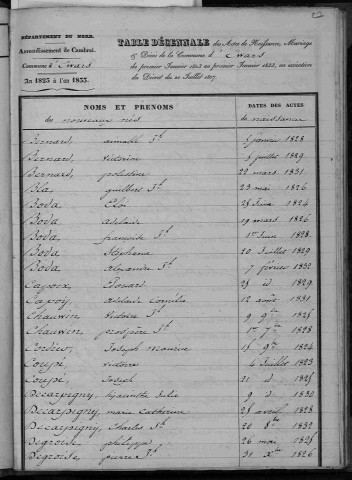 DÉPARTEMENT DU NORD.
Arrondissement de Cambrai.
Commune d'Ewars
An 1823 à l'an 1833.
TABLE DÉCENNALE des Actes de Naissance, Mariage
& Décès de la Commune d'Ewars
du premier Janvier 1823 au premier Janvier 1833, en exécution
du Décret du 20 Juillet 1807.
NOMS ET PRÉNOMS DATES DES ACTES
des nouveaux nés de naissance
Bernard, aimable Jh 5 janvier 1828
Bernard, victoire 5 juillet 1829
Bernard, 22 mars 1831
Blas, Jh 23 mai 1826
Boda, Eloi 28 Juin 1824
Boda, adélaïde 19 mars 1826
Boda, françoise Jh 1er Juin 1828
Boda, Stéphanie 20 Juillet 1829
Boda, alexandre Jh 7 février 1832
Capoix, Edouard 25 d 1829
Capoÿ, adélaïde 12 août 1831
Chauwin, victoire Jh 9 9bre 1825
Chauwin, prospère Jh 17 7bre 1828
Cordier, Joseph 15 9bre 1824
Coupé, victoire 4 Juillet 1823
Coupé, Joseph 21 d 1825
Decarpigny, Julie 9 d 1830
Decarpigny, marie Catherine 28 avril 1828
Decarpigny, Charles Jh 20 8bre 1832
Degroise, philippe 26 mai 1825
Degroise, pierre Jh 31 Xbre 1826